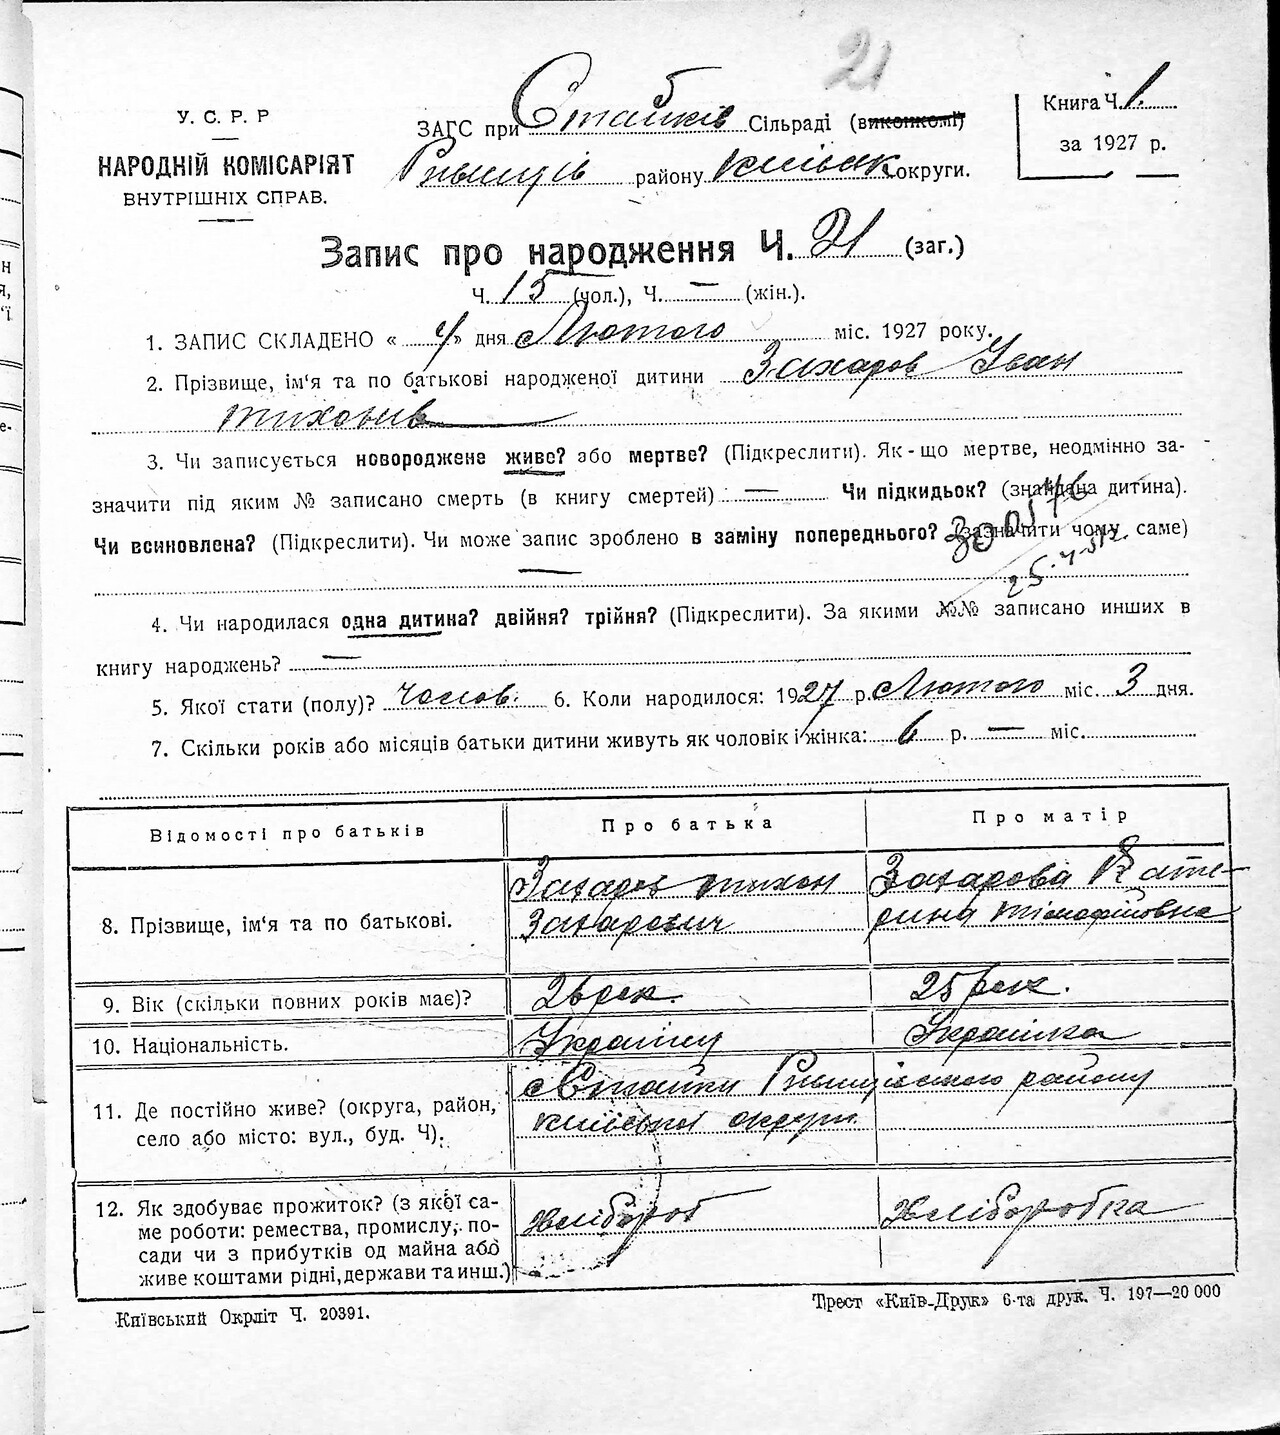 21
У. С. Р. Р
НАРОДНІЙ КОМІСАРІЯТ
ВНУТРІШНІХ СПРАВ.
ЗАГС при Стайків Сільраді (виконкомі)
Ржищів району Київськ округи.
Книга Ч. 1.
за 1927 р.
Запис про народження Ч. 21 (заг.)
Ч. 15 (чол.), Ч. — (жін.).
1. ЗАПИС СКЛАДЕНО « 4 » дня Лютого міс. 1927 року.
2. Прізвище, ім'я та по батькові народженої дитини Захаров Іван
Тихонів
3. Чи записується новороджене живе? або мертве? (Підкреслити). Як-що мертве, неодмінно за-
значити під яким № записано смерть (в книгу смертей) — Чи підкидьок? (знайдена дитина).
Чи всиновлена? (Підкреслити). Чи може запис зроблено в заміну попереднього? (зазначити чому саме)
—
4. Чи народилася одна дитина? двійня? трійня? (Підкреслити). За якими №№ записано инших в
книгу народжень? —
5. Якої стати (полу)? Чолов. 6. Коли народилося: 1927 р. Лютого міс. 3 дня.
7. Скільки років або місяців батьки дитини живуть як чоловік і жінка: 6 р. — міс.
Відомості про батьків Про батька Про матір
8. Прізвище, ім'я та по батькові.
Захаров Тихон
Захарович
Захарова Кате-
рина Тімофіївна
9. Вік (скільки повних років має)? 26 рок. 25 рок.
10. Національність. Українц Українка
11. Де постійно живе? (округа, район,
село або місто: вул., буд. Ч).
с Стайки Ржищівського району
київської округи
12. Як здобуває прожиток? (з якої са-
ме роботи: ремества, промислу, по-
сади чи з прибутків од майна або
живе коштами рідні, держави та инш.)
хлібороб
хліборобка
Київський Окрліт Ч. 20391.
Трест «Київ-Друк» 6-та друк. Ч. 197—20 000